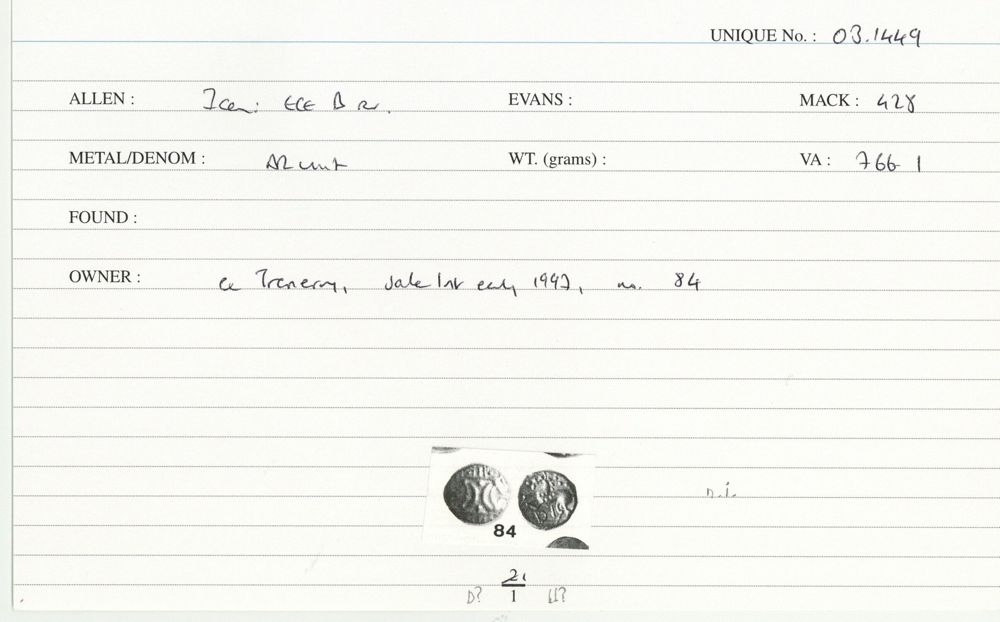 UNIQUE No. : 03.1449
ALLEN : Icen: ECE B r. EVANS : MACK : 428
METAL/DENOM : AR unit WT. (grams) : VA : 766-1
FOUND :
OWNER : ex Trenerry, sale list early 1997, no. 84
84
n.i.
D? 21 U?
1